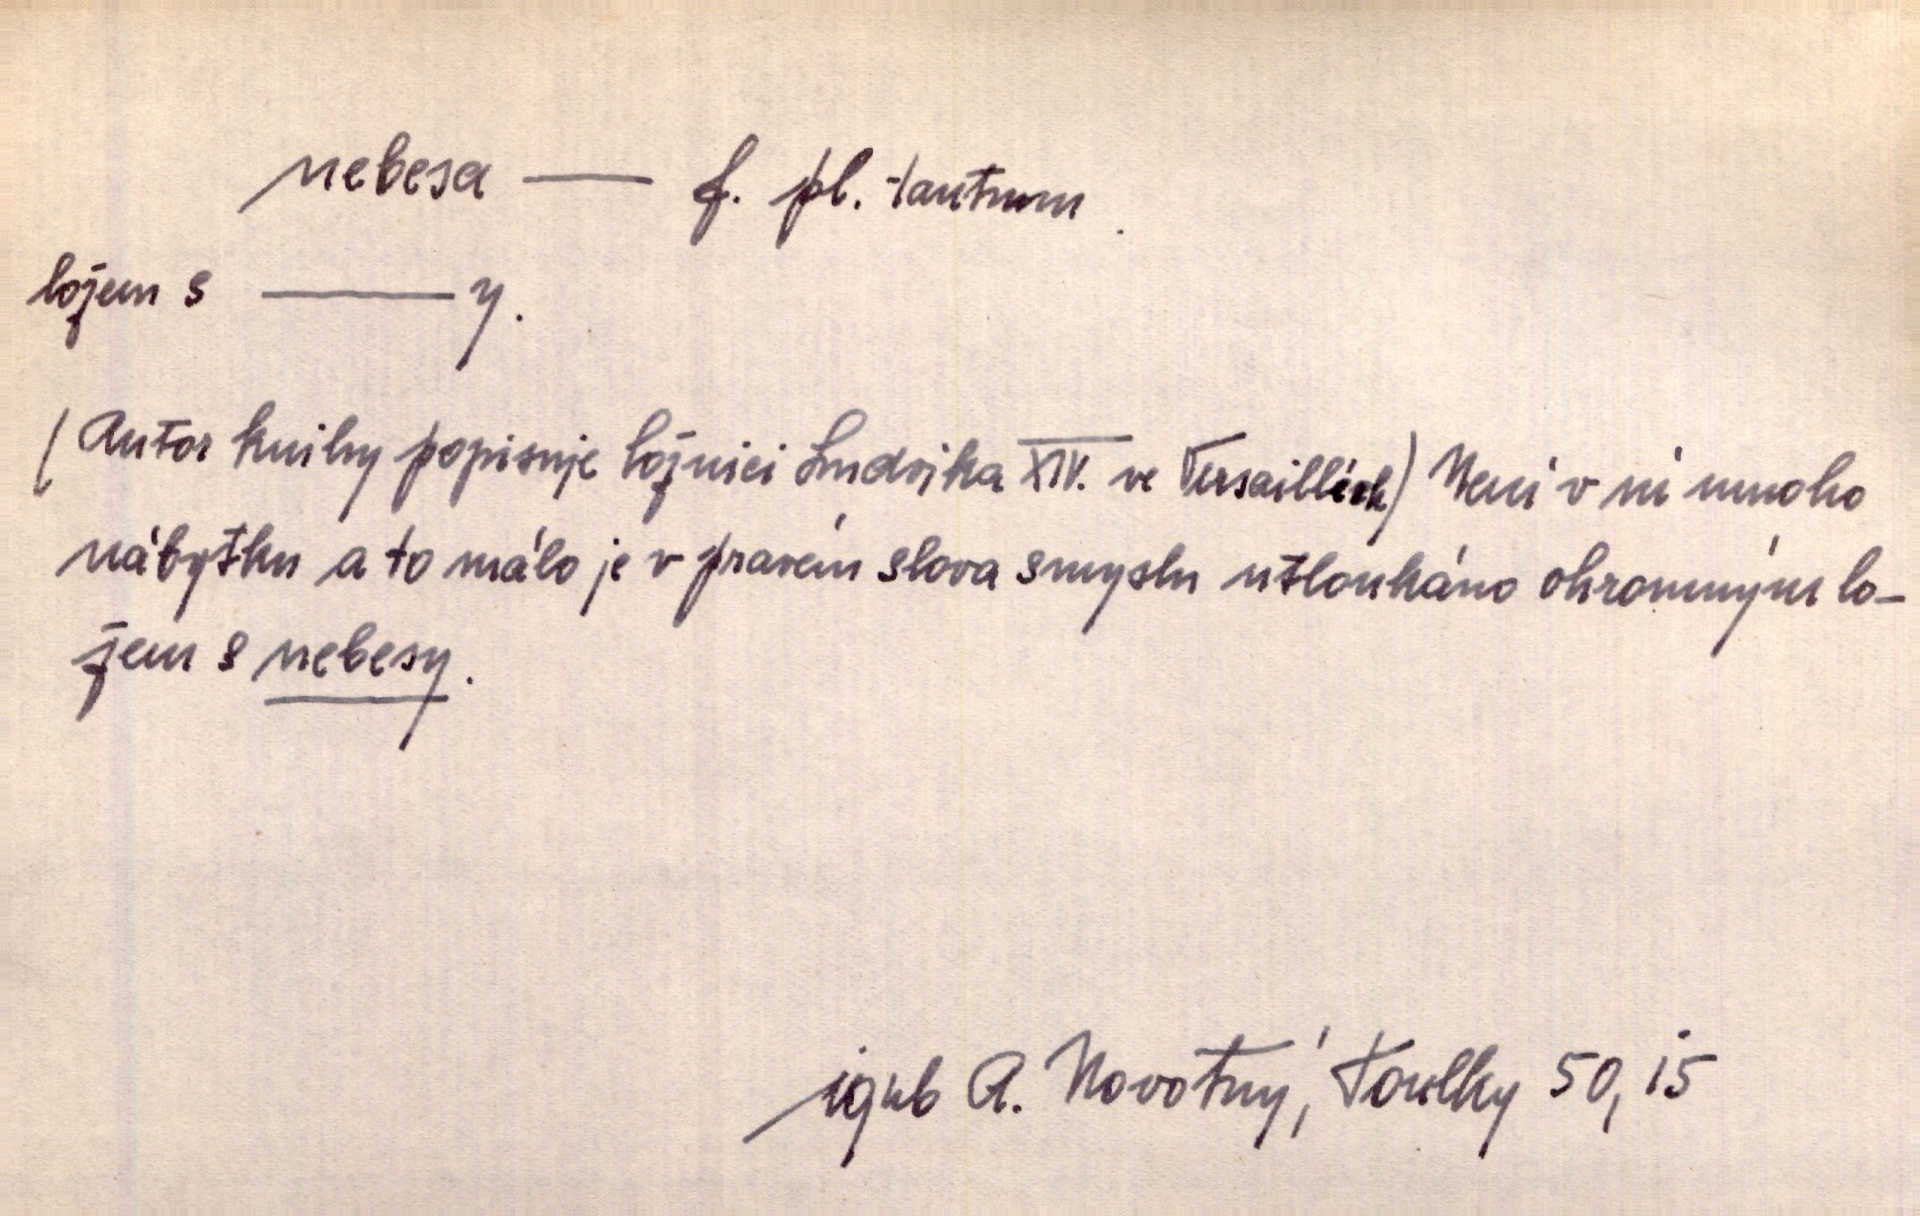 nebesa — f. pl. tantum.
ložem s — y.
(Autor knihy popisuje ložnici Ludvíka XIV. ve Versaillích) Není v ní mnoho
nábytku a to málo je v pravém slova smyslu utloukáno ohromným lo-
žem s nebesy.
A. Novotný, Toulky 50, 15